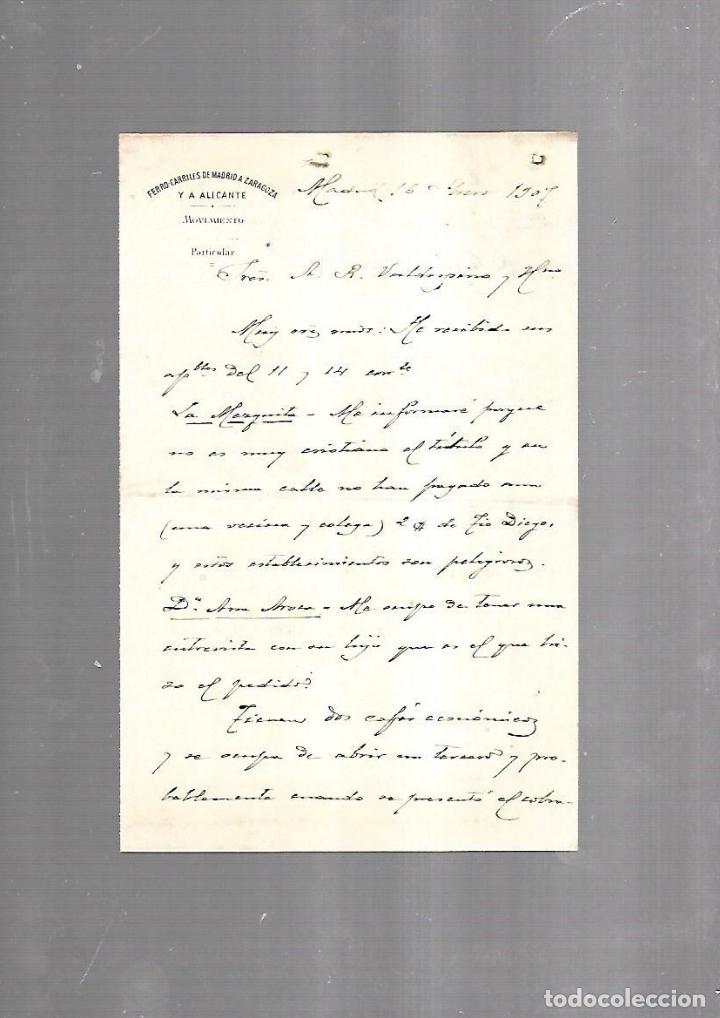 FERRO-CARRILES DE MADRID A ZARAGOZA
Y A ALICANTE
MOVIMIENTO
Particular
Madrid 16 Enero 1907
Sres. A. R. Valdespino y Hno
Muy sres mios: He recibido sus
aptas del 11 y 14 corrte
La Mezquita - Me informaré porque
no es muy cristiano el título y en
la misma calle no han pagado aun
(una vecina y colega) 2 @ de Tio Diego,
y estos establecimientos son peligrosos.
Dª. Ana Aroca - Me ocupo de tener una
entrevista con su hijo que es el que hi-
zo el pedido?
Tienen dos cafés económicos
y se ocupa de abrir un tercero y pro-
bablemente cuando se presentó el cobra-
todocoleccion
todocoleccion.net